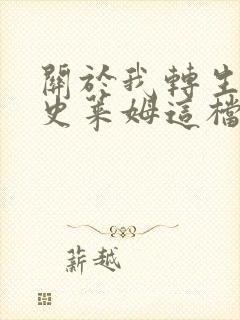 關於我轉生
史萊姆這檔
薪越